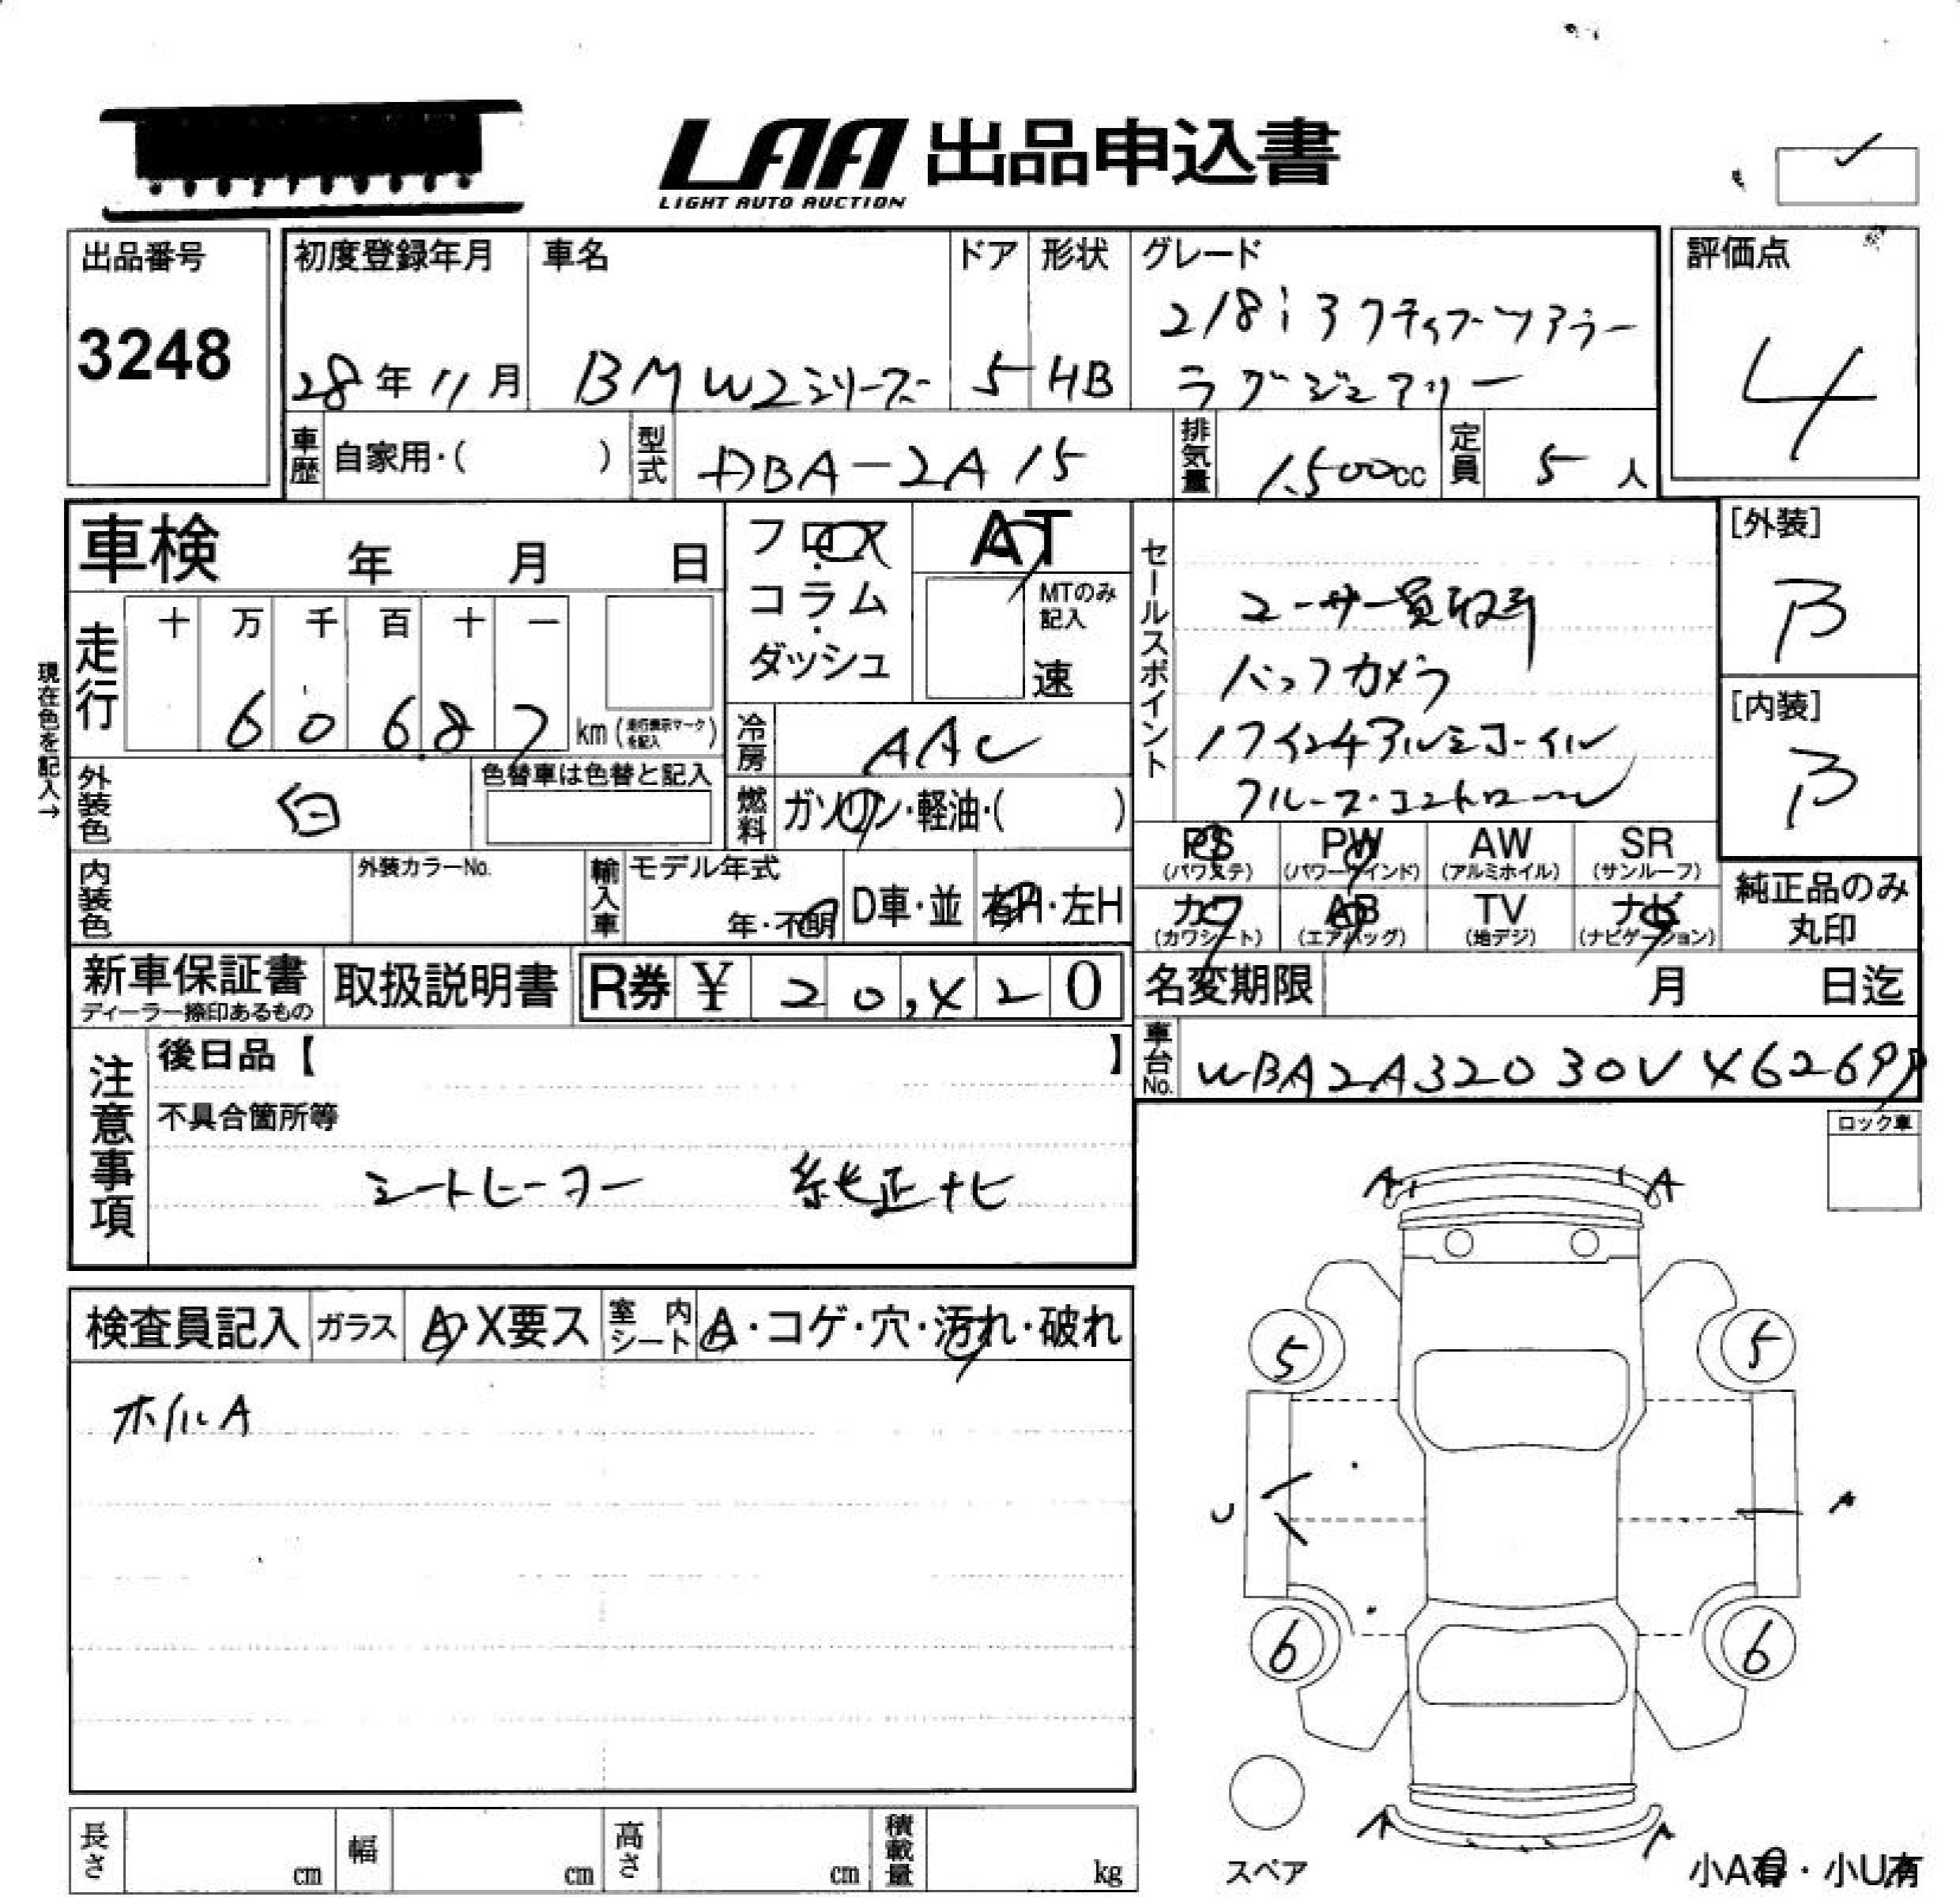 LAA 出品申込書
LIGHT AUTO AUCTION
出品番号
3248
初度登録年月
28年11月
車名
BMW2シリーズ
ドア
5
形状
HB
グレード
218iアクティブツアラー
ラグジュアリー
評価点
4
車歴
自家用・( )
型式
DBA-2A15
排気量
1.500cc
定員
5人
車検 年 月 日
フロア
・
コラム
・
ダッシュ
AT
MTのみ
記入
速
セールスポイント
ユーザー買取車
バックカメラ
17インチアルミホイル
クルーズ・コントロール
[外装]
B
[内装]
B
現在色を記入→
走行
十 万 千 百 十 一
6 0 6 8 7 km (走行表示マークを記入)
冷房
AAC
外装色
白
色替車は色替と記入
燃料
ガソリン・軽油・( )
PS
(パワステ)
PW
(パワーウインド)
AW
(アルミホイル)
SR
(サンルーフ)
内装色
外装カラーNo.
輸入車
モデル年式
年・不明
D車・並
右H・左H
カワ
(カワシート)
AB
(エアバッグ)
TV
(地デジ)
ナビ
(ナビゲーション)
純正品のみ
丸印
新車保証書
ディーラー捺印あるもの
取扱説明書
R券 ¥
名変期限 月 日迄
注意事項
後日品【 】
不具合箇所等
シートヒーター 純正ナビ
車台No.
ロック車
A A
検査員記入
ガラス
A・X要ス
室内シート
A・コゲ・穴・汚れ・破れ
ホイルA
5 5
U A
6 6
A A
スペア
小A有・小U有
長さ cm
幅 cm
高さ cm
積載量 kg